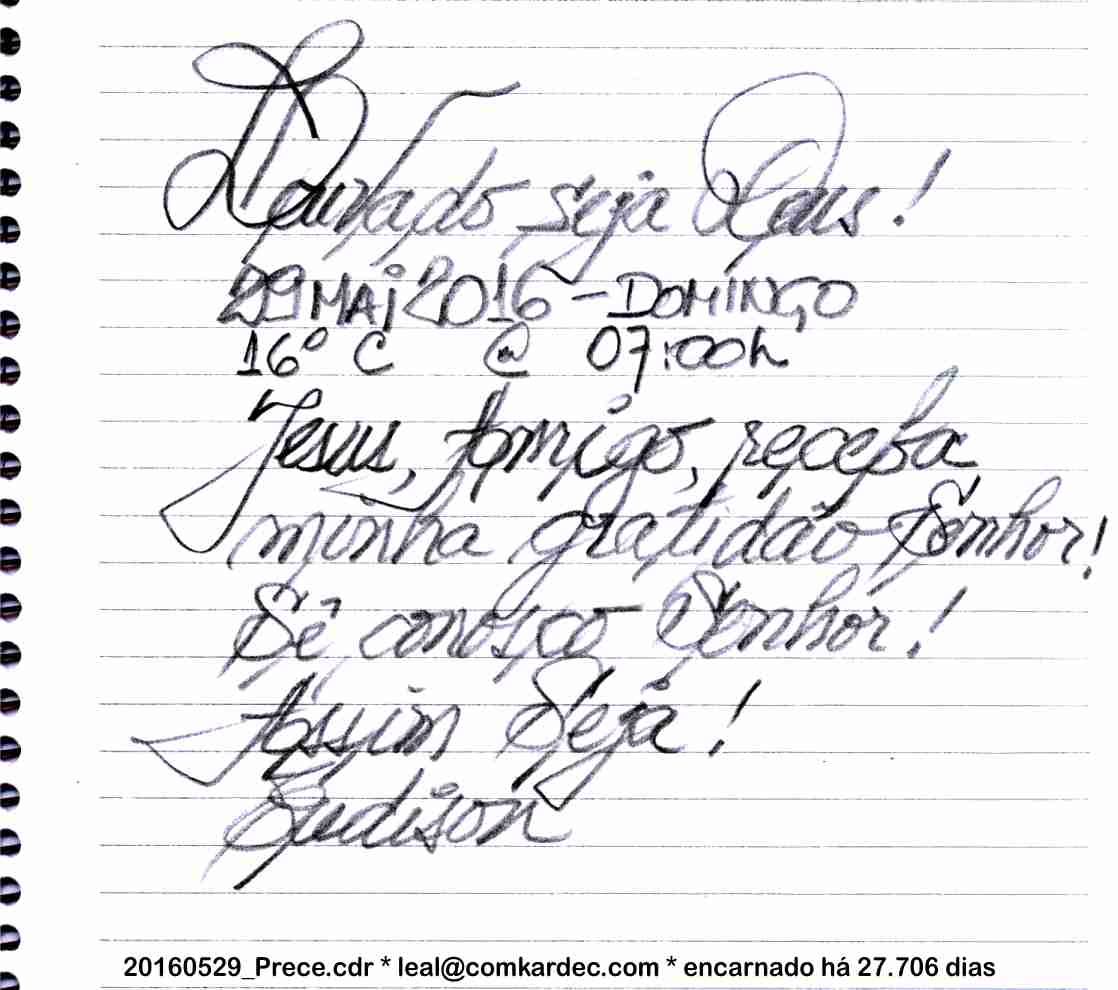 Louvado seja Deus!
29 MAi 2016 - DOMINGO
16º C @ 07:00h
Jesus, Amigo, receba
minha gratidão Senhor!
Sê conosco Senhor!
Assim Seja!
Eudison
20160529_Prece.cdr * leal@comkardec.com * encarnado há 27.706 dias